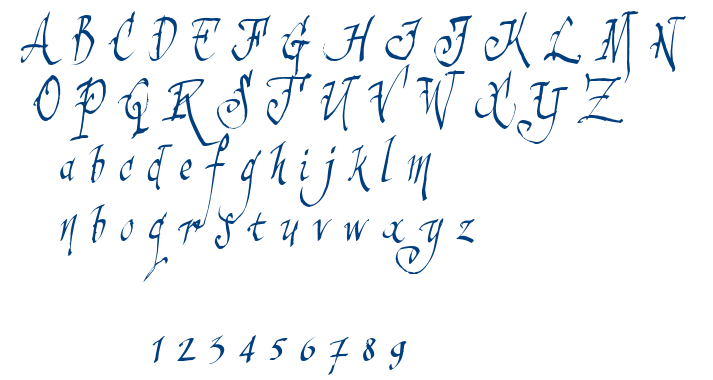 A B C D E F G H I J K L M N
O P Q R S T U V W X Y Z
a b c d e f g h i j k l m
n b o q r s t u v w x y z
1 2 3 4 5 6 7 8 9